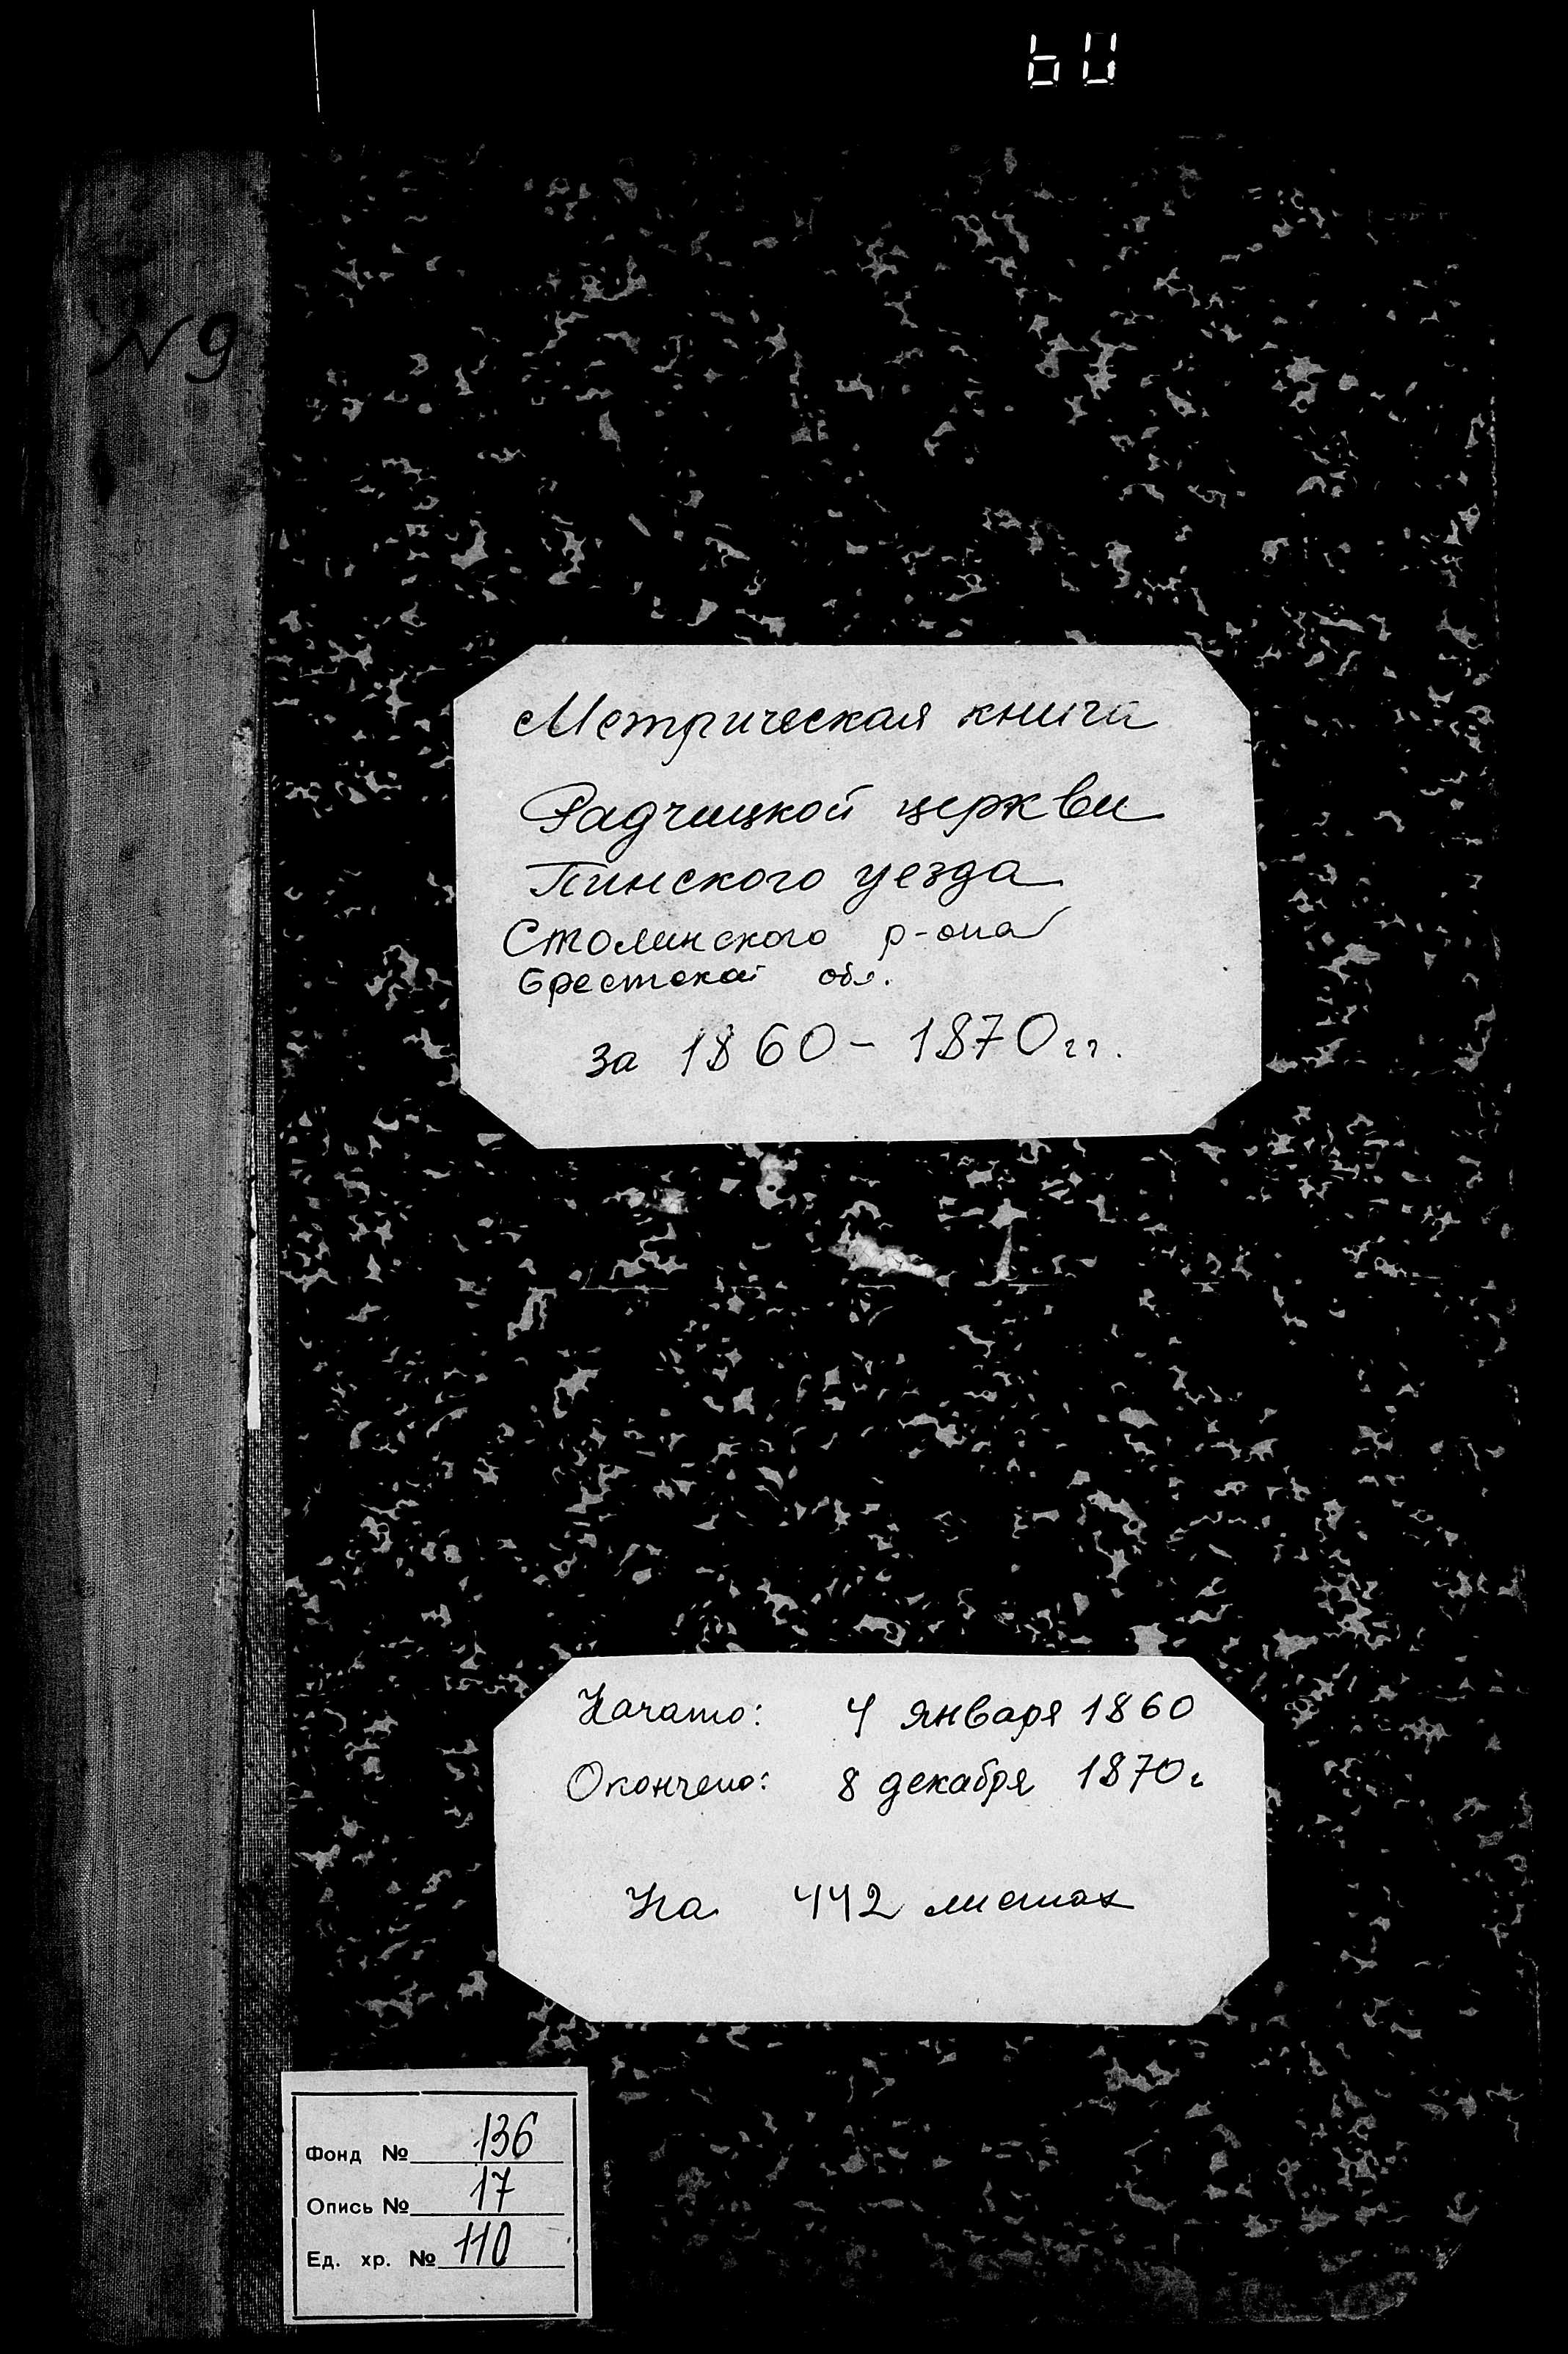 60
N 9
Метрическая книга
Радчицкой церкви
Пинского уезда
Столинского р-она
Брестской обл.
за 1860 - 1870 гг.
Начато: 4 января 1860
Окончено: 8 декабря 1870 г
На 442 листах
Фонд № 136
Опись № 17
Ед. хр. № 110